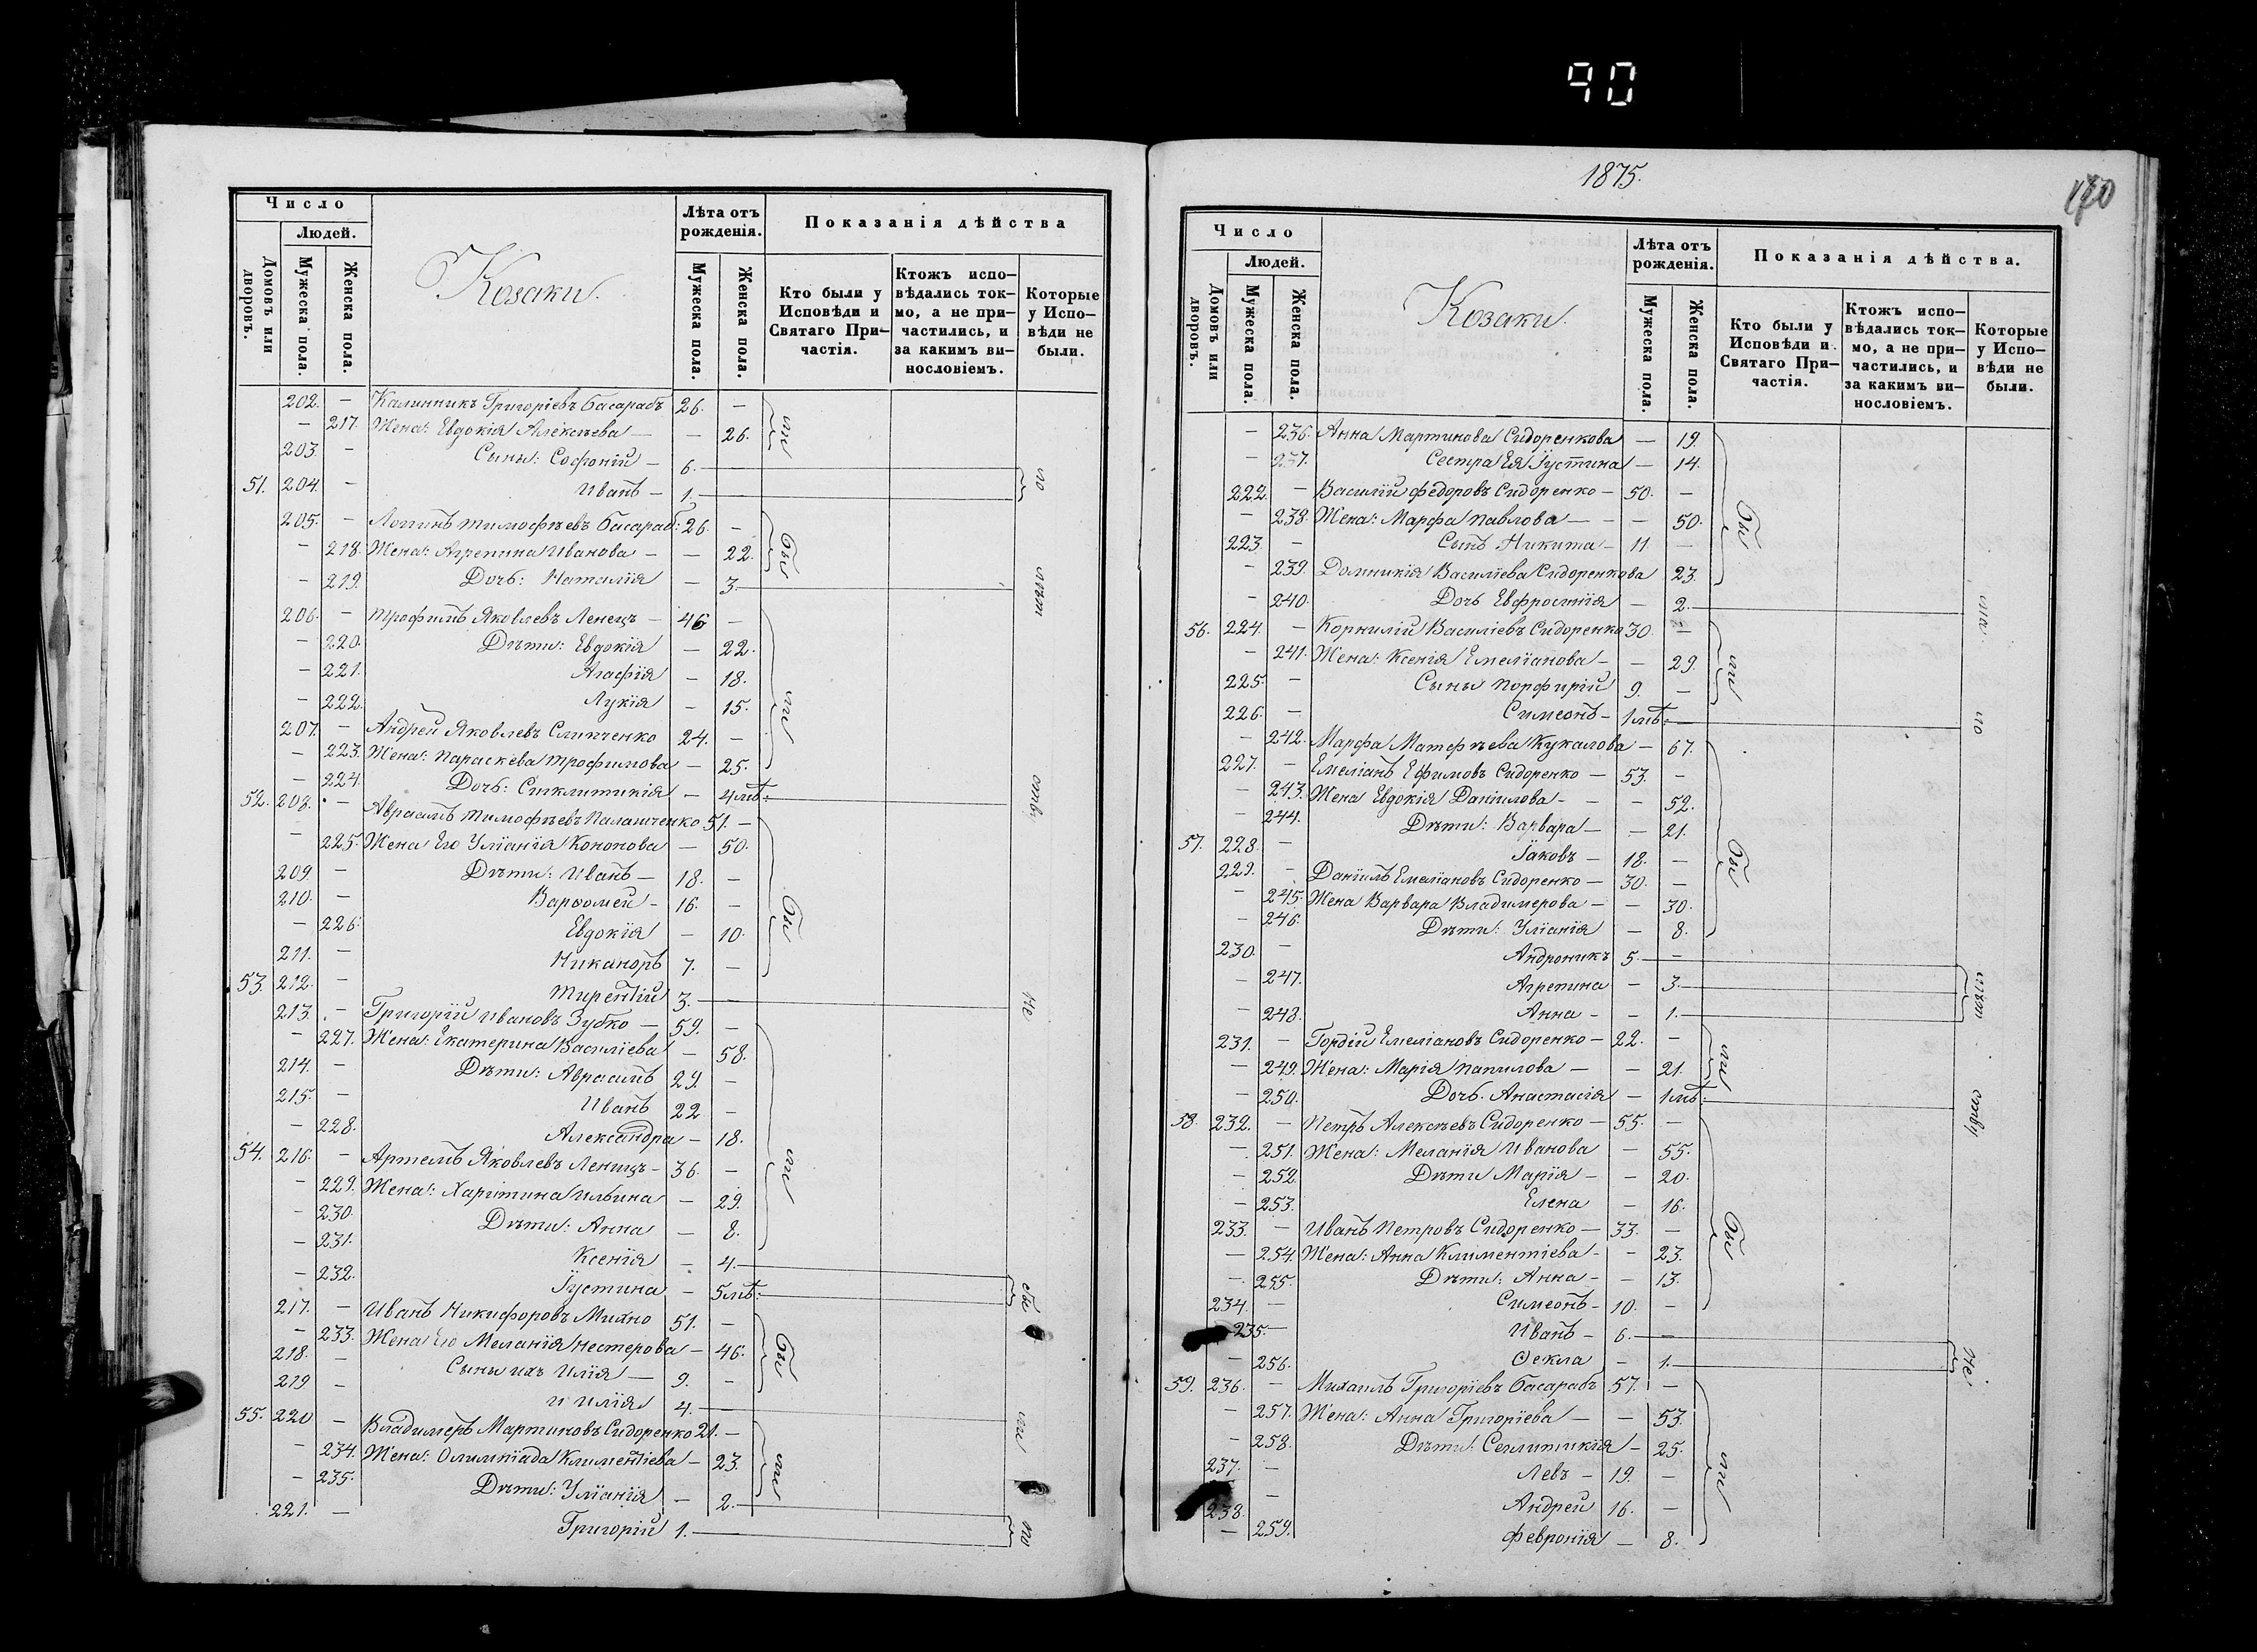 90
Число
Людей.
Домовъ или дворовъ.
Мужеска пола.
Женска пола.
Козаки.
Лѣта отъ рожденія.
Мужеска пола.
Женска пола.
Показанія дѣйства
Кто были у Исповѣди и Святаго Причастія.
Ктожъ исповѣдались токмо, а не причастились, и за какимъ винословіемъ.
Которые у Исповѣди не были.
202. — Калинникъ Григоріевъ Басарабъ 26. —
— 217. Жена: Евдокія Алексѣева — — 26.
203. — Сыны: Софроній — 6.
51. 204. — Иванъ — 1.
205. — Логинъ Тимофѣевъ Басараб: 26. —
— 218. Жена: Агрепина Иванова — — 22.
— 219. Дочь: Наталія — 3.
206. — Трофимъ Яковлевъ Ленецъ — 46 —
— 220. Дѣти: Евдокія — 22.
— 221. Агафія — 18.
— 222. Лукія — 15.
207. — Андрей Яковлевъ Слипченко 24. —
— 223. Жена: Параскева Трофимова — 25.
— 224. Дочь: Сигклитикія — 4 мѣ:
52. 208. — Авраамъ Тимофѣевъ Палашченко 51. —
— 225. Жена Его Уліанія Кононова — 50.
209 — Дѣти: Иванъ — 18. —
210. — Варѳомей — 16. —
— 226. Евдокія — 10.
211. — Никаноръ 7. —
53. 212. — Тирентій 3. —
213. — Григорій Ивановъ Зубко — 59. —
— 227. Жена: Екатерина Василіева — 58.
214. — Дѣти: Авраамъ 29. —
215. — Иванъ 22 —
— 228. Александра — 18.
54. 216. — Артемъ Яковлевъ Ленецъ — 36. —
— 229. Жена: Харитина Ильина — 29.
— 230. Дѣти: Анна — 8.
— 231. Ксенія — 4.
— 232. Іустина — 5 мѣ:
217. — Иванъ Никифоровъ Михно 51. —
— 233. Жена Его Меланія Нестерова — 46.
218. — Сыны ихъ Илія — 9. —
219 — и Илія 4. —
55. 220 — Владимеръ Мартиновъ Сидоренко 21. —
— 234. Жена: Олимпіада Климентіева — 23.
— 235. Дѣти: Уліанія — 2.
221. — Григорій 1.
1875.
170
Число
Людей.
Домовъ или дворовъ.
Мужеска пола.
Женска пола.
Козаки.
Лѣта отъ рожденія.
Мужеска пола.
Женска пола.
Показанія дѣйства.
Кто были у Исповѣди и Святаго Причастія.
Ктожъ исповѣдались токмо, а не причастились, и за какимъ винословіемъ.
Которые у Исповѣди не были.
— 236. Анна Мартинова Сидоренкова — 19.
— 237. Сестра Ея Іустина — 14.
222. — Василій Федоровъ Сидоренко — 50. —
— 238. Жена: Марфа Павлова — — — 50.
223. — Сынъ Никита — 11 —
— 239. Домникія Василіева Сидоренкова 23.
— 240. Дочь Евфросинія — 2.
56. 224. — Корнилій Василіевъ Сидоренко 30. —
— 241. Жена: Ксенія Емеліанова — — 29.
225. — Сыны Порфирій 9. —
226. — Симеонъ — 1 мѣ: —
— 242. Марфа Матфѣева Кукалова — 67.
227. — Емеліанъ Ефимовъ Сидоренко — 53. —
— 243. Жена Евдокія Даніилова — — — 52.
— 244. Дѣти: Варвара — — 21.
57. 228. — Іаковъ — 18. —
229. — Даніилъ Емеліановъ Сидоренко — 30. —
— 245. Жена Варвара Владимерова — — 30.
— 246. Дѣти: Уліанія — 8.
230. — Андроникъ 5. —
— 247. Агрепина — 3.
— 248. Анна — — 1.
231. — Гордій Емеліановъ Сидоренко — 22. —
— 249. Жена: Марія Панилова — — 21.
— 250. Дочь. Анастасія — 1 мѣ:
58. 232. — Петръ Алексѣевъ Сидоренко — 55. —
— 251. Жена: Меланія Иванова — 55.
— 252. Дѣти Марія — — 20.
— 253. Елена — 16.
233. — Иванъ Петровъ Сидоренко — 33. —
— 254. Жена: Анна Климентіева — — 23.
— 255. Дѣти: Анна — — 13.
234. — Симеонъ — 10. —
235. — Иванъ — 6. —
— 256. Ѳекла — 1.
59. 236. — Михаилъ Григоріевъ Басарабъ 57. —
— 257. Жена: Анна Григоріева — — 53.
— 258. Дѣти: Секлитикія — 25.
237. — Левъ — 19. —
238. — Андрей 16. —
— 259. Февронія — 8.